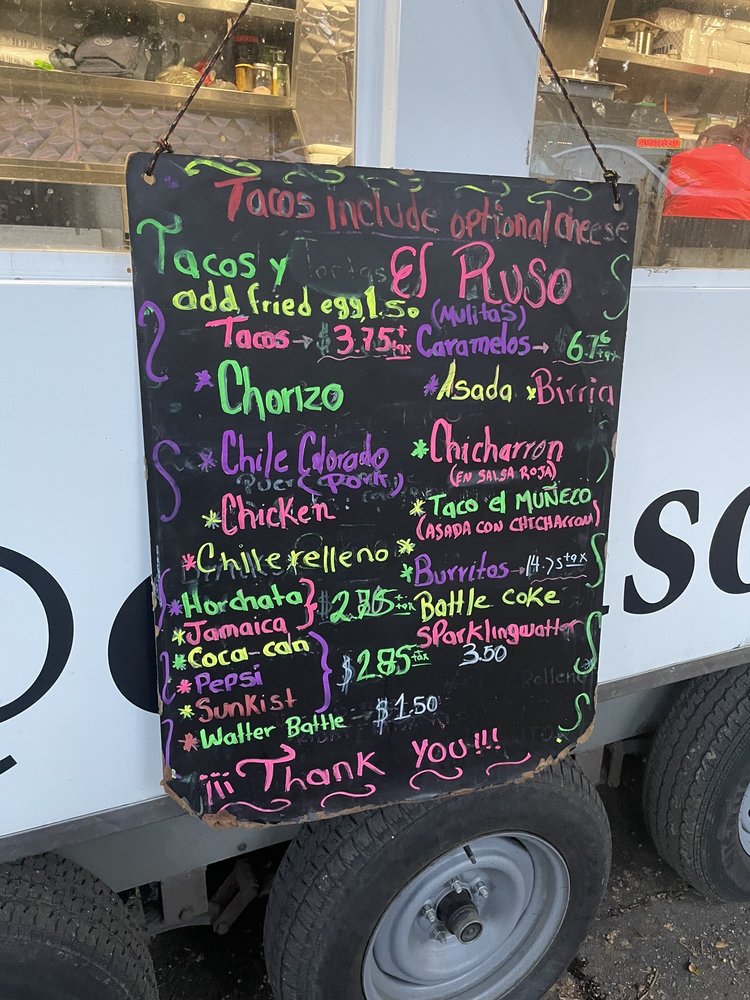 Tacos include optional cheese
Tacos y Tortas El Ruso
add fried egg 1.50
(Mulitas)
Tacos → $3.75 + tax
Caramelos →
*Chorizo
*Asada *Birria
*Chile Colorado
(Pork)
*Chicharron
(EN SALSA ROJA)
*Chicken
*Taco el MUÑEZO
(ASADA CON CHICHARRON)
*Chile relleno *
*Burritos → 14.75 + tax
*Horchata
*Jamaica
Battle coke
Sparklingwatter
3.50
*Coca-can
*Pepsi
*Sunkist
$2.85 + tax
*Watter Battle → $1.50
¡¡¡Thank you!!!